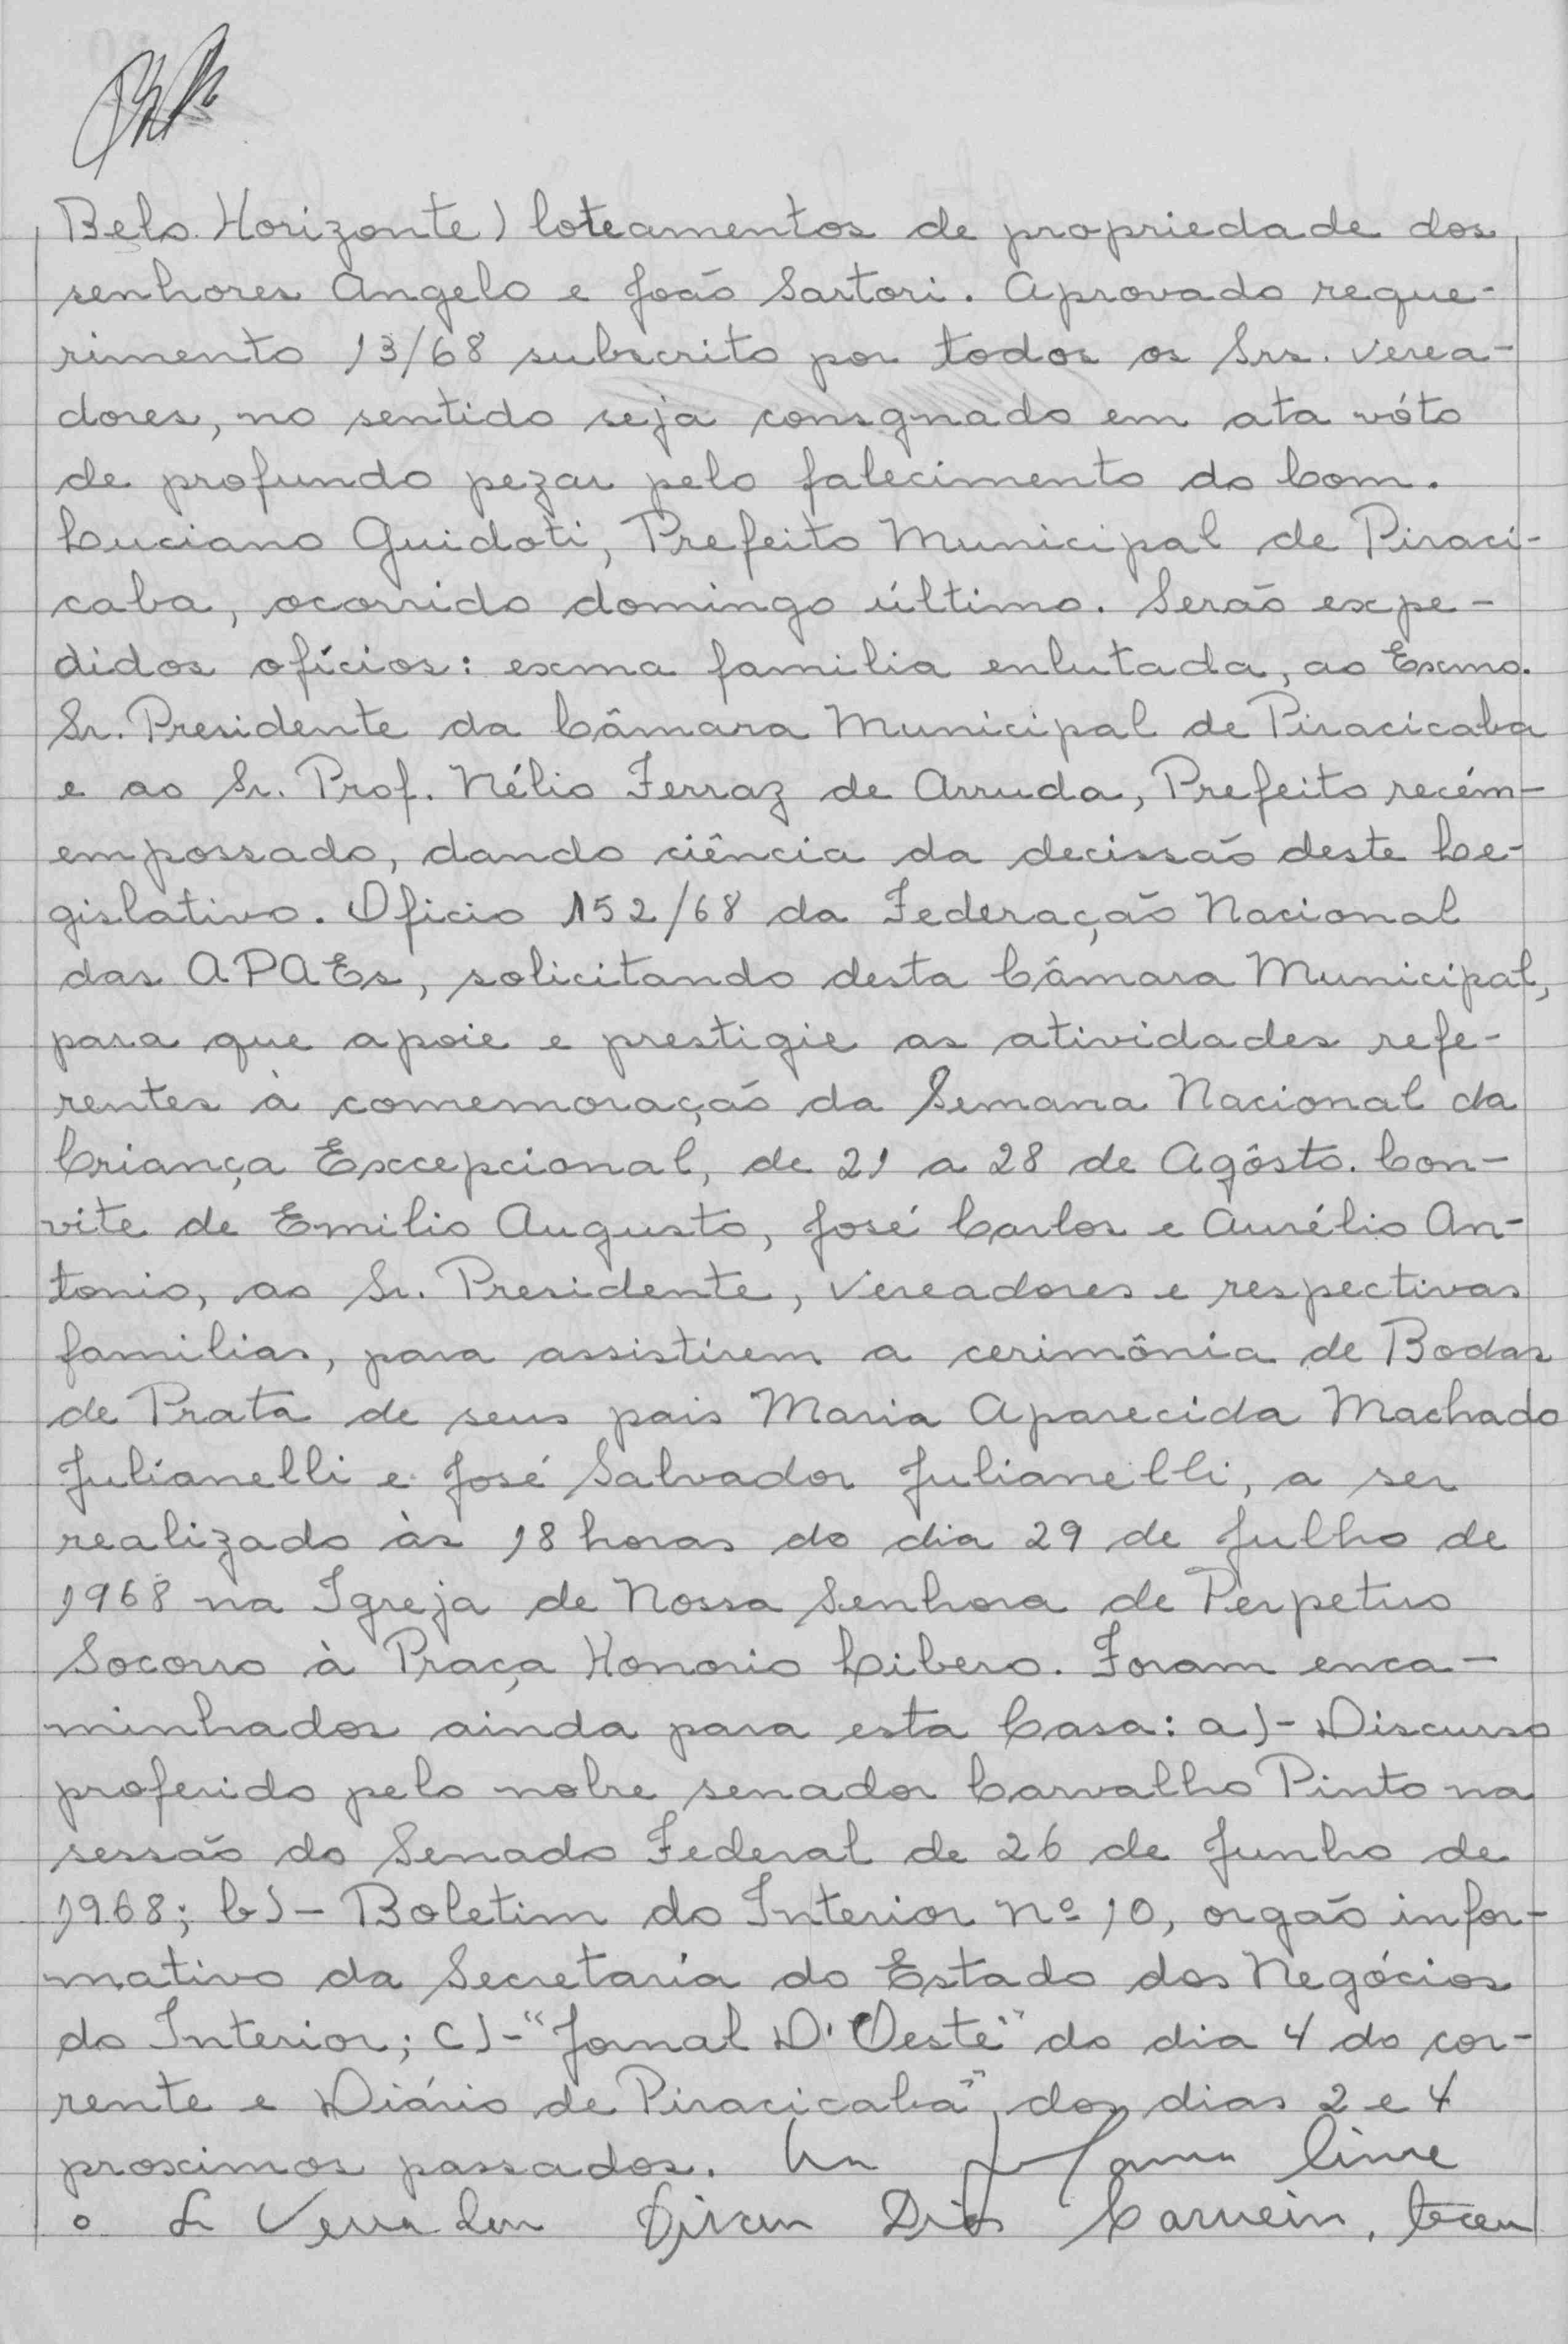 Belo Horizonte) loteamentos de propriedade dos
senhores Angelo e João Sartori. Aprovado reque-
rimento 13/68 subscrito por todos os Srs. verea-
dores, no sentido seja consgnado em ata vóto
de profundo pezar pelo falecimento do Com.
Luciano Guidoti, Prefeito Municipal de Piraci-
caba, ocorrido domingo último. Serão expe-
didos ofícios: exma familia enlutada, ao Exmo.
Sr. Presidente da Câmara Municipal de Piracicaba
e ao Sr. Prof. Nélio Ferraz de Arruda, Prefeito recém-
empossado, dando ciência da decissão deste Le-
gislativo. Oficio 152/68 da Federação Nacional
das APAEs, solicitando desta Câmara Municipal,
para que apoie e prestigie as atividades refe-
rentes à comemoração da Semana Nacional da
Criança Excepcional, de 21 a 28 de Agôsto. Con-
vite de Emilio Augusto, José Carlos e Aurélio An-
tonio, ao Sr. Presidente, Vereadores e respectivas
familias, para assistirem a cerimônia de Bodas
de Prata de seus pais Maria Aparecida Machado
Julianelli e José Salvador Julianelli, a ser
realizado às 18 horas do dia 29 de Julho de
1968 na Igreja de Nossa Senhora de Perpetuo
Socorro à Praça Honorio Libero. Foram enca-
minhados ainda para esta Casa: a)- Discurso
proferido pelo nobre senador Carvalho Pinto na
sessão do Senado Federal de 26 de Junho de
1968; b)- Boletim do Interior nº 10, orgão infor-
mativo da Secretaria do Estado dos Negócios
do Interior; c)-"Jornal D'Oeste" do dia 4 do cor-
rente e Diário de Piracicaba", dos dias 2 e 4
proximos passados. livre
o Sr Vereador Dias